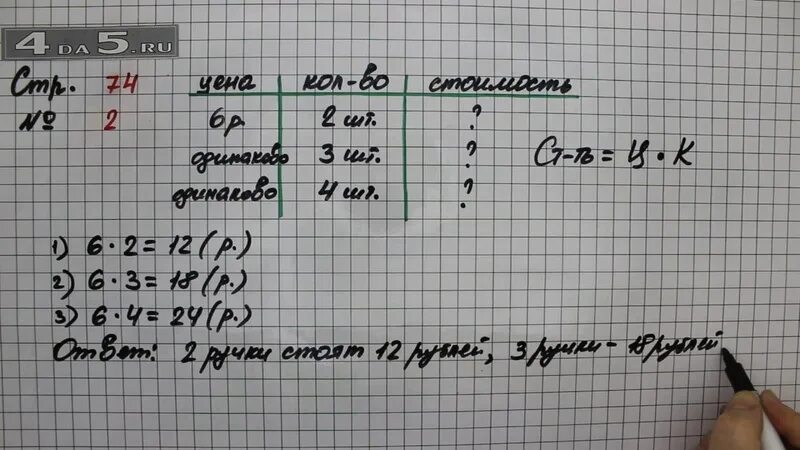 4DA5.RU
Стр. 74 цена кол-во стоимость
№ 2 6р. 2 шт. ?
одинаково 3 шт. ?
одинаково 4 шт. ?
Ст-ть = Ц · К
1) 6 · 2 = 12 (р.)
2) 6 · 3 = 18 (р.)
3) 6 · 4 = 24 (р.)
Ответ: 2 ручки стоят 12 рублей, 3 ручки - 18 рублей